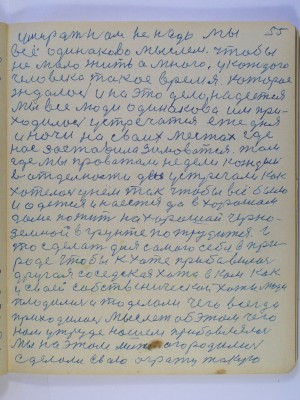 55
умират нам не надь мы
всё одинаково мыслем. чтобы
не мало жить а много, у каждого
человека такое время которае
ждалося и на это дело, надеемся
мы все люди одинакова им при-
ходилося устречатся еже дня
и ночи на своих местах где
нас заставила зимоватся. там
где мы проватам недели каждый
в отделности дня устречал как
хотелося у нем так чтобы всё было
и одется и наестся да в хорошом
даме пожит на хорошай черно-
земной в грунте потрудится. и
это сделат для самого себя в при-
роде чтобы к хате прибавилася
другая соседская хата в ком как
у своей собственической хате люди
плодилися и то делали чего всегда
приходилося мыслет об этом чего
нам у труде нашем прибавлялося
мы на этом месте огородилися
сделали свою ограту такую